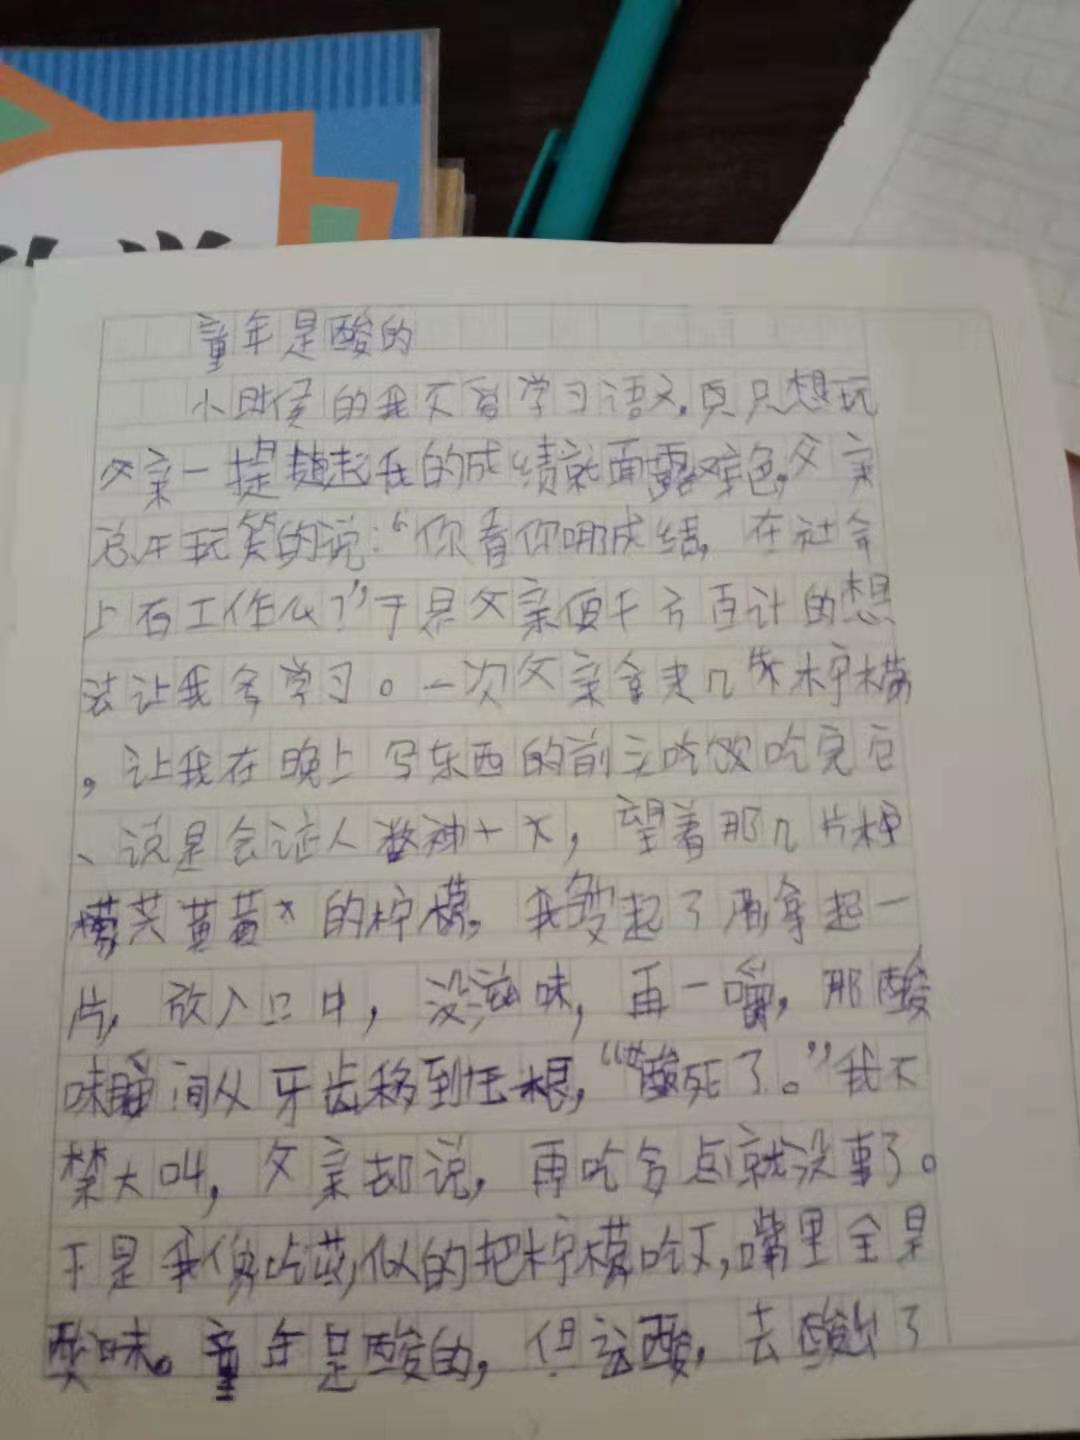 童年是酸的
小时候的我不爱学习语文,只想玩
父亲一提起我的成绩就面露难色,父亲
总开玩笑的说:“你看你哪成绩,在社会
上有工作么?”于是父亲便千方百计的想
法让我多学习。一次父亲拿来几片柠檬
,让我在晚上写东西的前先吃饭吃完它
、说是会让人精神十天,望着那几片柠
檬共黄黄的柠檬。我皱起了眉拿起一
片,放入口中,没滋味,再一嚼,那酸
味瞬间从牙齿移到舌根,“酸死了。”我不
禁大叫,父亲却说,再吃多点就没事了。
于是我像吃药似的把柠檬吃下,嘴里全是
酸味。童年是酸的,但这酸,去酸出了